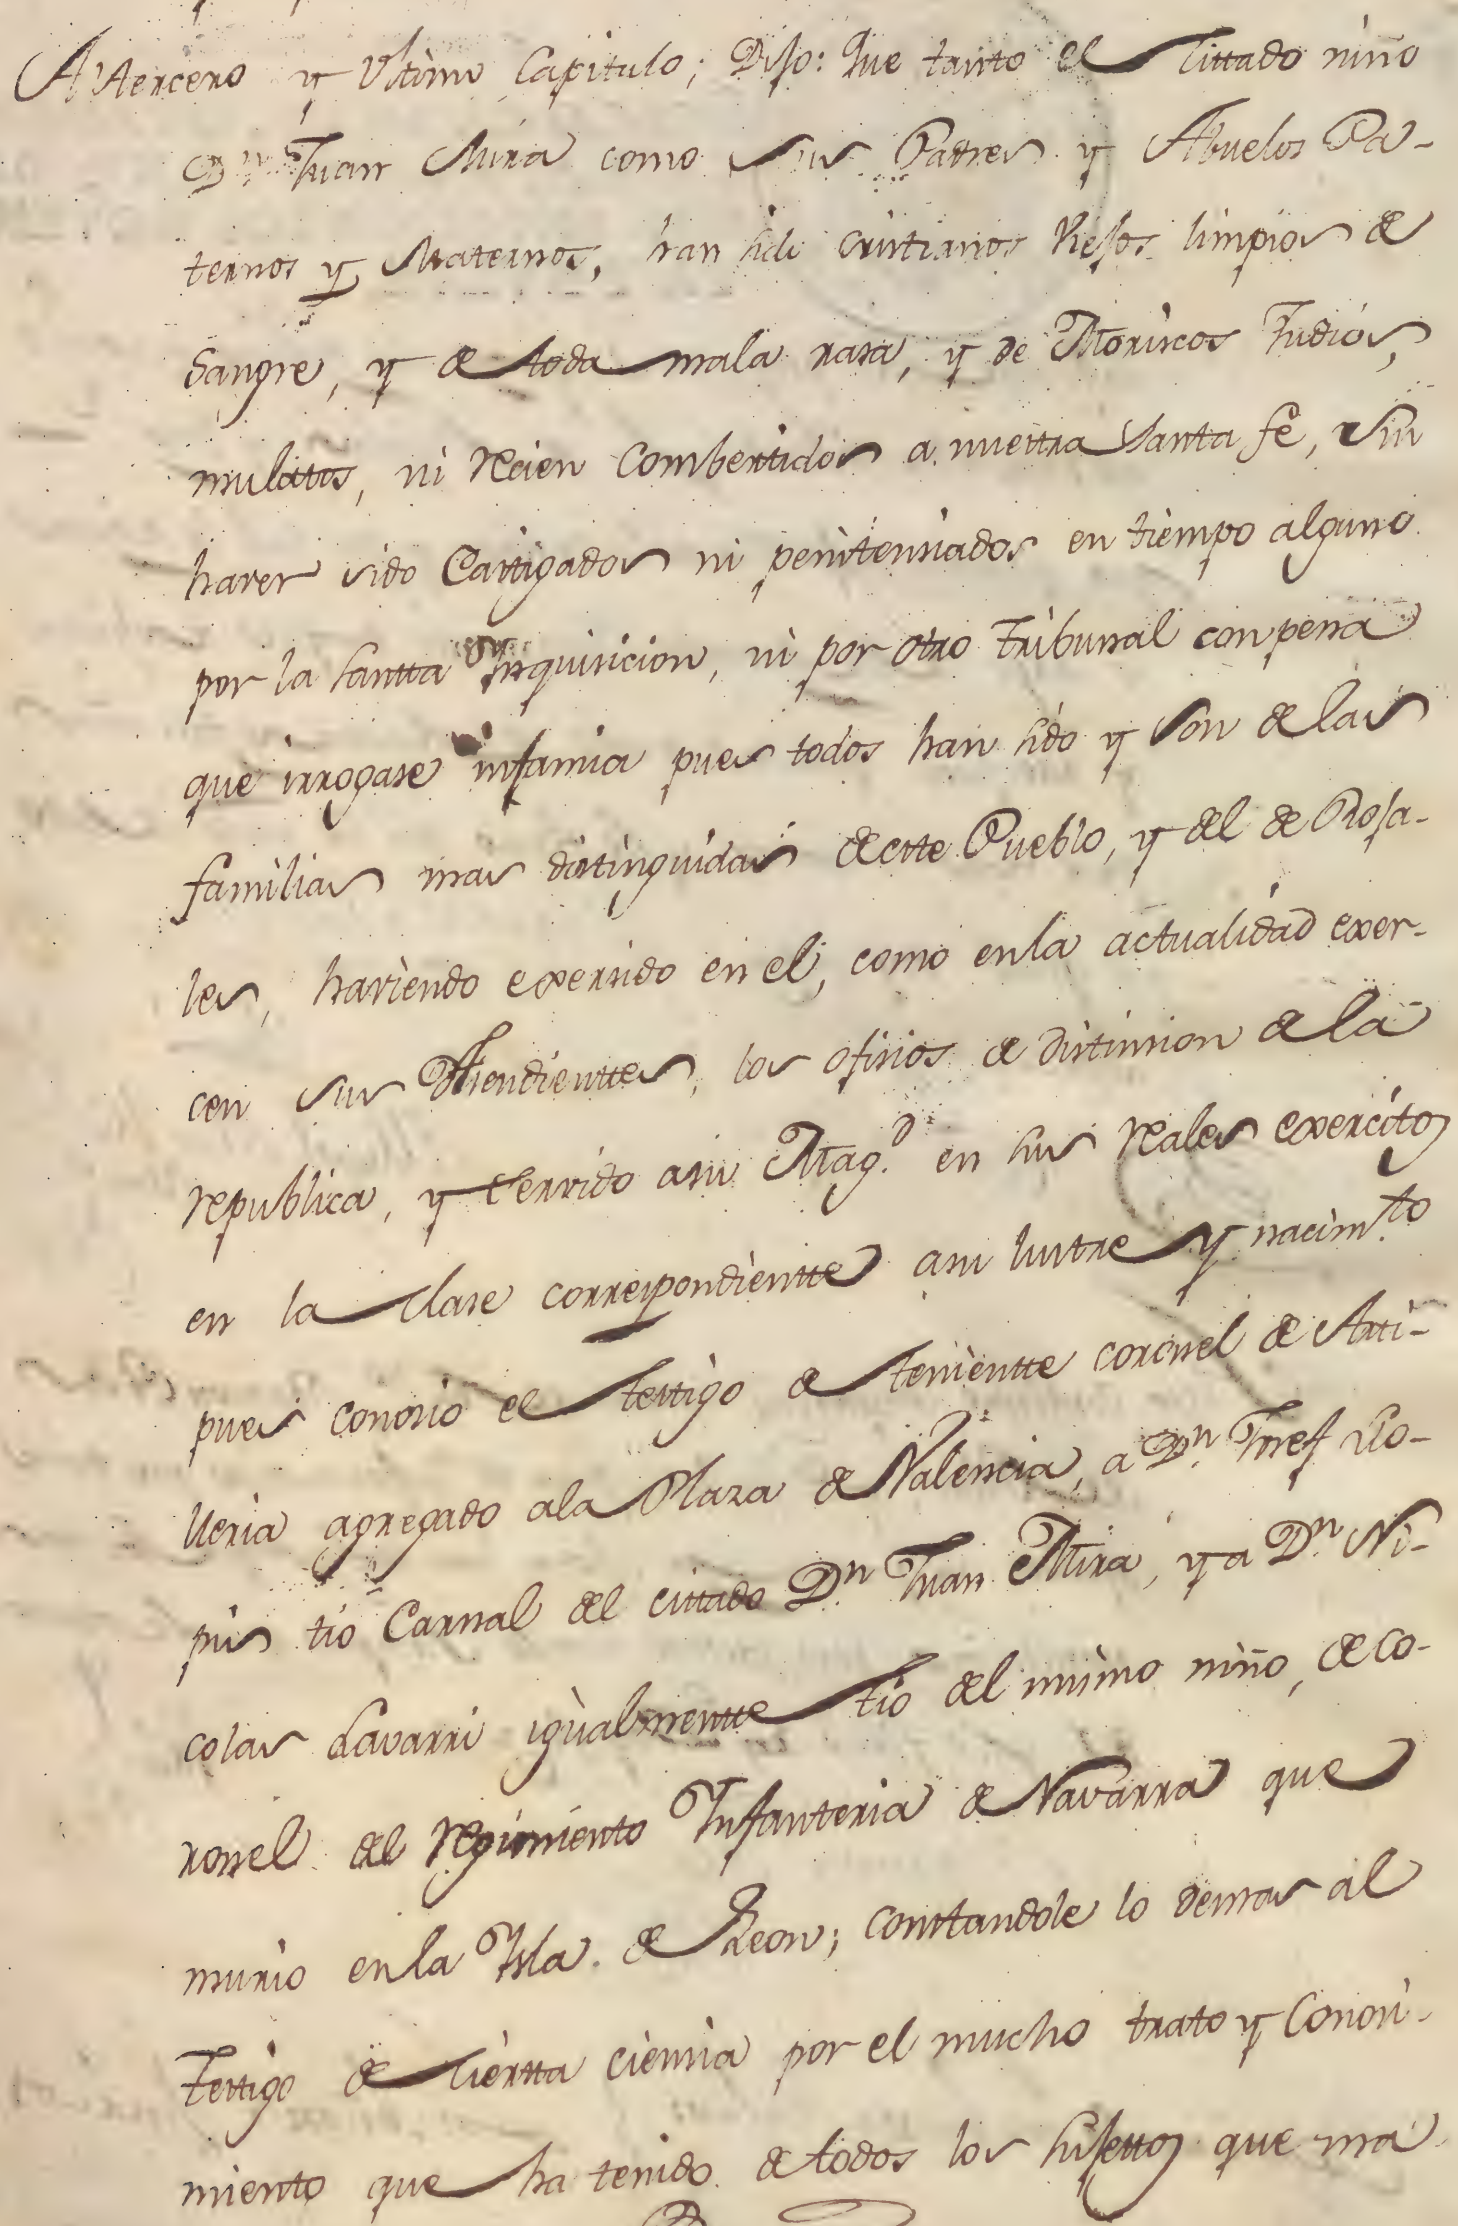 Al tercero y Ultimo Capitulo; Dijo: Que tanto el Cittado niño
Dn Juan Mira como sus Padres y Abuelos Pa-
ternos y Maternos, han sido cristianos Viejos limpios de
Sangre, y de toda mala rasa, y de Moriscos Judios,
mulattos, ni recien Combertidos a nuestra Santa fe, sin
haver sido Castigados ni penitensiados en tiempo alguno
por la Santta Ynquisicion, ni por otro Tribunal con pena
que irrogase infamia pues todos han sido y son de las
familias mas distinguidas de este Pueblo, y del de Roja-
les, haviendo exersido en el, como en la actualidad exer-
cen sus Asendienttes, los ofisios de distinsion de la
republica, y servido asu Mag.d en sus reales exercitos
en la Clase correspondientte asu lustre y nacim.to
pues conosio el testigo de tenientte coronel de Arti-
lleria agregado ala Plaza de Valencia, a Dn Josef Ro-
pis tio Carnal del cittado Dn Juan Mira, y a Dn Ni-
colas Lavarri igualmentte tio del mismo niño, de co-
ronel del regimiento Infanteria de Navarra que
murio en la Isla de Leon; constandole lo demas al
Testigo de Ciertta ciensia por el mucho trato y Conosi-
miento que ha tenido de todos los sujettos que ma